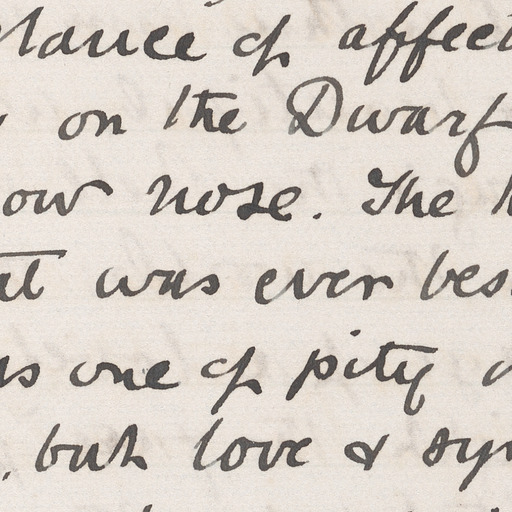 glance of affect
on the Dwarf
now nose. The
at was ever bes
as one of pity
, but love & sym